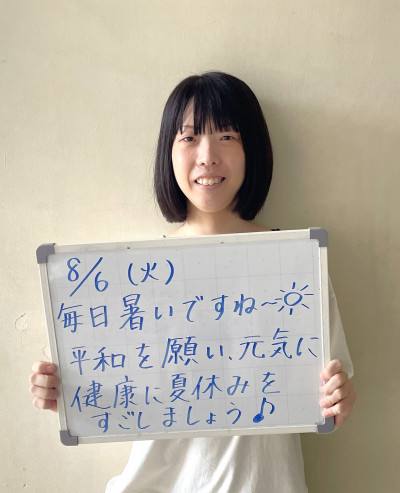 8/6 (火)
毎日暑いですね〜☼
平和を願い、元気に
健康に夏休みを
すごしましょう♪